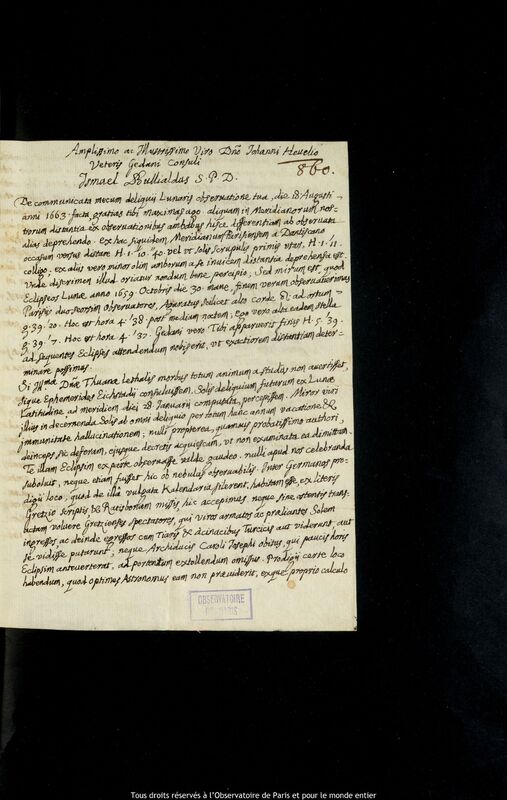 Amplissimo ac Illustrissimo Viro Dño Johanni Hevelio
Veteris Gedani Consuli
860.
Ismael Bullialdus S. P. D.
De communicata mecum deliquij Lunaris observatione tua, die 18 Augusti
anni 1663. facta gratias tibi maximas ago. aliquam in Meridianorum nos-
trorum distantia ex observationibus ambabus hisce differentiam ab observatis
alias deprehendo. Ex hac siquidem Meridianum Parisinensem a Dantiscano
occasum versus distare H. 1. 10. 40. vel vt solis scrupulis primis vtar, H. 1. 11.
colligo, ex alijs vero minor olim amborum a se invicem distantia deprehensa est.
Vnde discrimen illud oriatur nondum bene percipio. Sed mirum est, quod
Eclipseos Lunæ, anno 1659. Octobris die 30. mane, finem verum observaturimus
Parisijs duo seorsim observatores, Agarratus scilicet alto Corde ad ortum
9. 39. 20. Hoc est hora 4. 38. post mediam noctem; Ego vero alta eadem stella
9. 39. 7. Hoc est hora 4. 37. Gedani vero Tibi apparuerit finis H. 5. 39.
ad sequentes Eclipses attendendum nobis erit, vt exactiorem distantiam deter-
minare possimus.
Si Illma Dñæ Thuanæ lethalis morbus totum animum a studijs non avertisset,
sique Ephemerides Eichstadij consuluissem, Solis deliquium futurum ex Lunæ
Latitudine ad meridiem diei 28 Januarij computata, percepissem. Miror viri
illius in decernenda Solis ab omni deliquio per totum hunc annum vacatione &
immunitate hallucinationem; nulli propterea, quamvis probatissimo authori,
deinceps sic deferam, ejusque decretis acquiescam, vt non examinata ea dimittam.
Te illam Eclipsim ex parte observasse valde gaudeo. nulli apud nos celebranda
suboluit, neque etiam fuisset hic ob nebulas observabilis. Inter Germanos pro-
digij loco, quod de illa vulgata Kalendaria silerent, habitam esse, ex literis
Gretzio scriptis & Ratisbonam missis hic accepimus. neque sine ostentis trans-
actam voluere Gretzienses spectatores, qui viros armatos ac præliantes Solem
ingressos, ac deinde egressos cum Tiaris & acinacibus Turcicis aut viderunt, aut
se vidisse putarunt, neque Archiducis Caroli Josephi obitus, qui paucis horis
Eclipsim anteverterat, ad portentum extollendum omissus. Prodigij certe loco
habendum, quod optimus Astronomus eam non præviderit, exque proprio calculo
OBSERVATOIRE
DE PARIS
Tous droits réservés à l'Observatoire de Paris et pour le monde entier